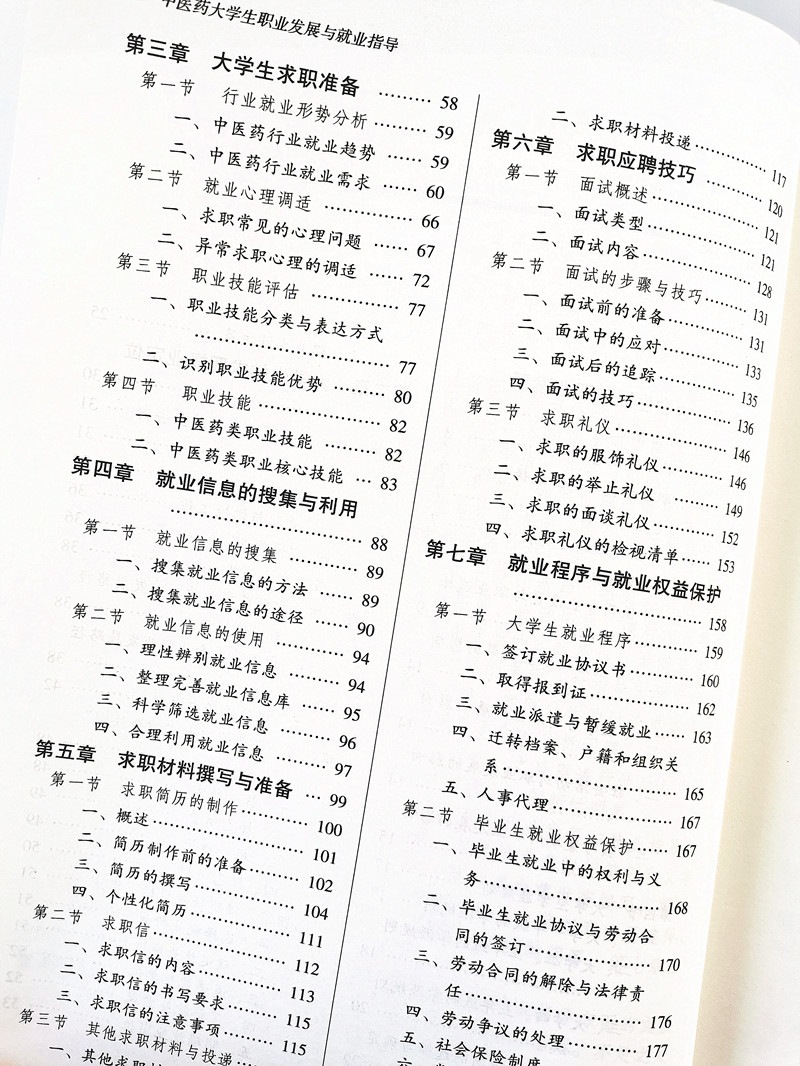 中医药大学生职业发展与就业指导
第三章 大学生求职准备 ……… 58
第一节 行业就业形势分析 ……… 59
一、中医药行业就业趋势 …… 59
二、中医药行业就业需求 …… 60
第二节 就业心理调适 ……………… 66
一、求职常见的心理问题 …… 67
二、异常求职心理的调适 …… 72
第三节 职业技能评估 ……………… 77
一、职业技能分类与表达方式
……………………………… 77
二、识别职业技能优势 ……… 80
第四节 职业技能 …………………… 82
一、中医药类职业技能 ……… 82
二、中医药类职业核心技能 … 83
第四章 就业信息的搜集与利用
……………………………… 88
第一节 就业信息的搜集 ………… 89
一、搜集就业信息的方法 …… 89
二、搜集就业信息的途径 …… 90
第二节 就业信息的使用 ………… 94
一、理性辨别就业信息 ……… 94
二、整理完善就业信息库 …… 95
三、科学筛选就业信息 ……… 96
四、合理利用就业信息 ……… 97
第五章 求职材料撰写与准备 … 99
第一节 求职简历的制作 ………… 100
一、概述 ……………………… 101
二、简历制作前的准备 ……… 102
三、简历的撰写 ……………… 104
四、个性化简历 ……………… 111
第二节 求职信 …………………… 112
一、求职信的内容 …………… 113
二、求职信的书写要求 ……… 115
三、求职信的注意事项 ……… 115
第三节 其他求职材料与投递
一、其他求职
二、求职材料投递 …………… 117
第六章 求职应聘技巧 ………… 120
第一节 面试概述 ………………… 121
一、面试类型 ………………… 121
二、面试内容 ………………… 128
第二节 面试的步骤与技巧 ……… 131
一、面试前的准备 …………… 131
二、面试中的应对 …………… 133
三、面试后的追踪 …………… 135
四、面试的技巧 ……………… 136
第三节 求职礼仪 ………………… 146
一、求职的服饰礼仪 ………… 146
二、求职的举止礼仪 ………… 149
三、求职的面谈礼仪 ………… 152
四、求职礼仪的检视清单 …… 153
第七章 就业程序与就业权益保护
……………………………… 158
第一节 大学生就业程序 ………… 159
一、签订就业协议书 ………… 160
二、取得报到证 ……………… 162
三、就业派遣与暂缓就业 …… 163
四、迁转档案、户籍和组织关
系 …………………………… 165
五、人事代理 ………………… 167
第二节 毕业生就业权益保护 …… 167
一、毕业生就业中的权利与义
务 …………………………… 168
二、毕业生就业协议与劳动合
同的签订 …………………… 170
三、劳动合同的解除与法律责
任 …………………………… 176
四、劳动争议的处理 ………… 177
五、社会保险制度